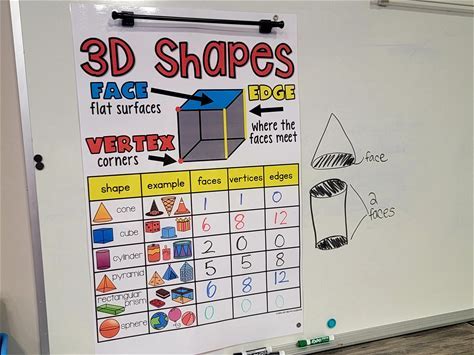 3D Shapes
FACE
flat surfaces
EDGE
Where the
faces meet
VERTEX
corners
shape example faces vertices edges
cone 1 1 0
cube 6 8 12
cylinder 2 0 0
pyramid 5 5 8
rectangular
prism 6 8 12
sphere 0 0 0
face
2
faces
EXPO